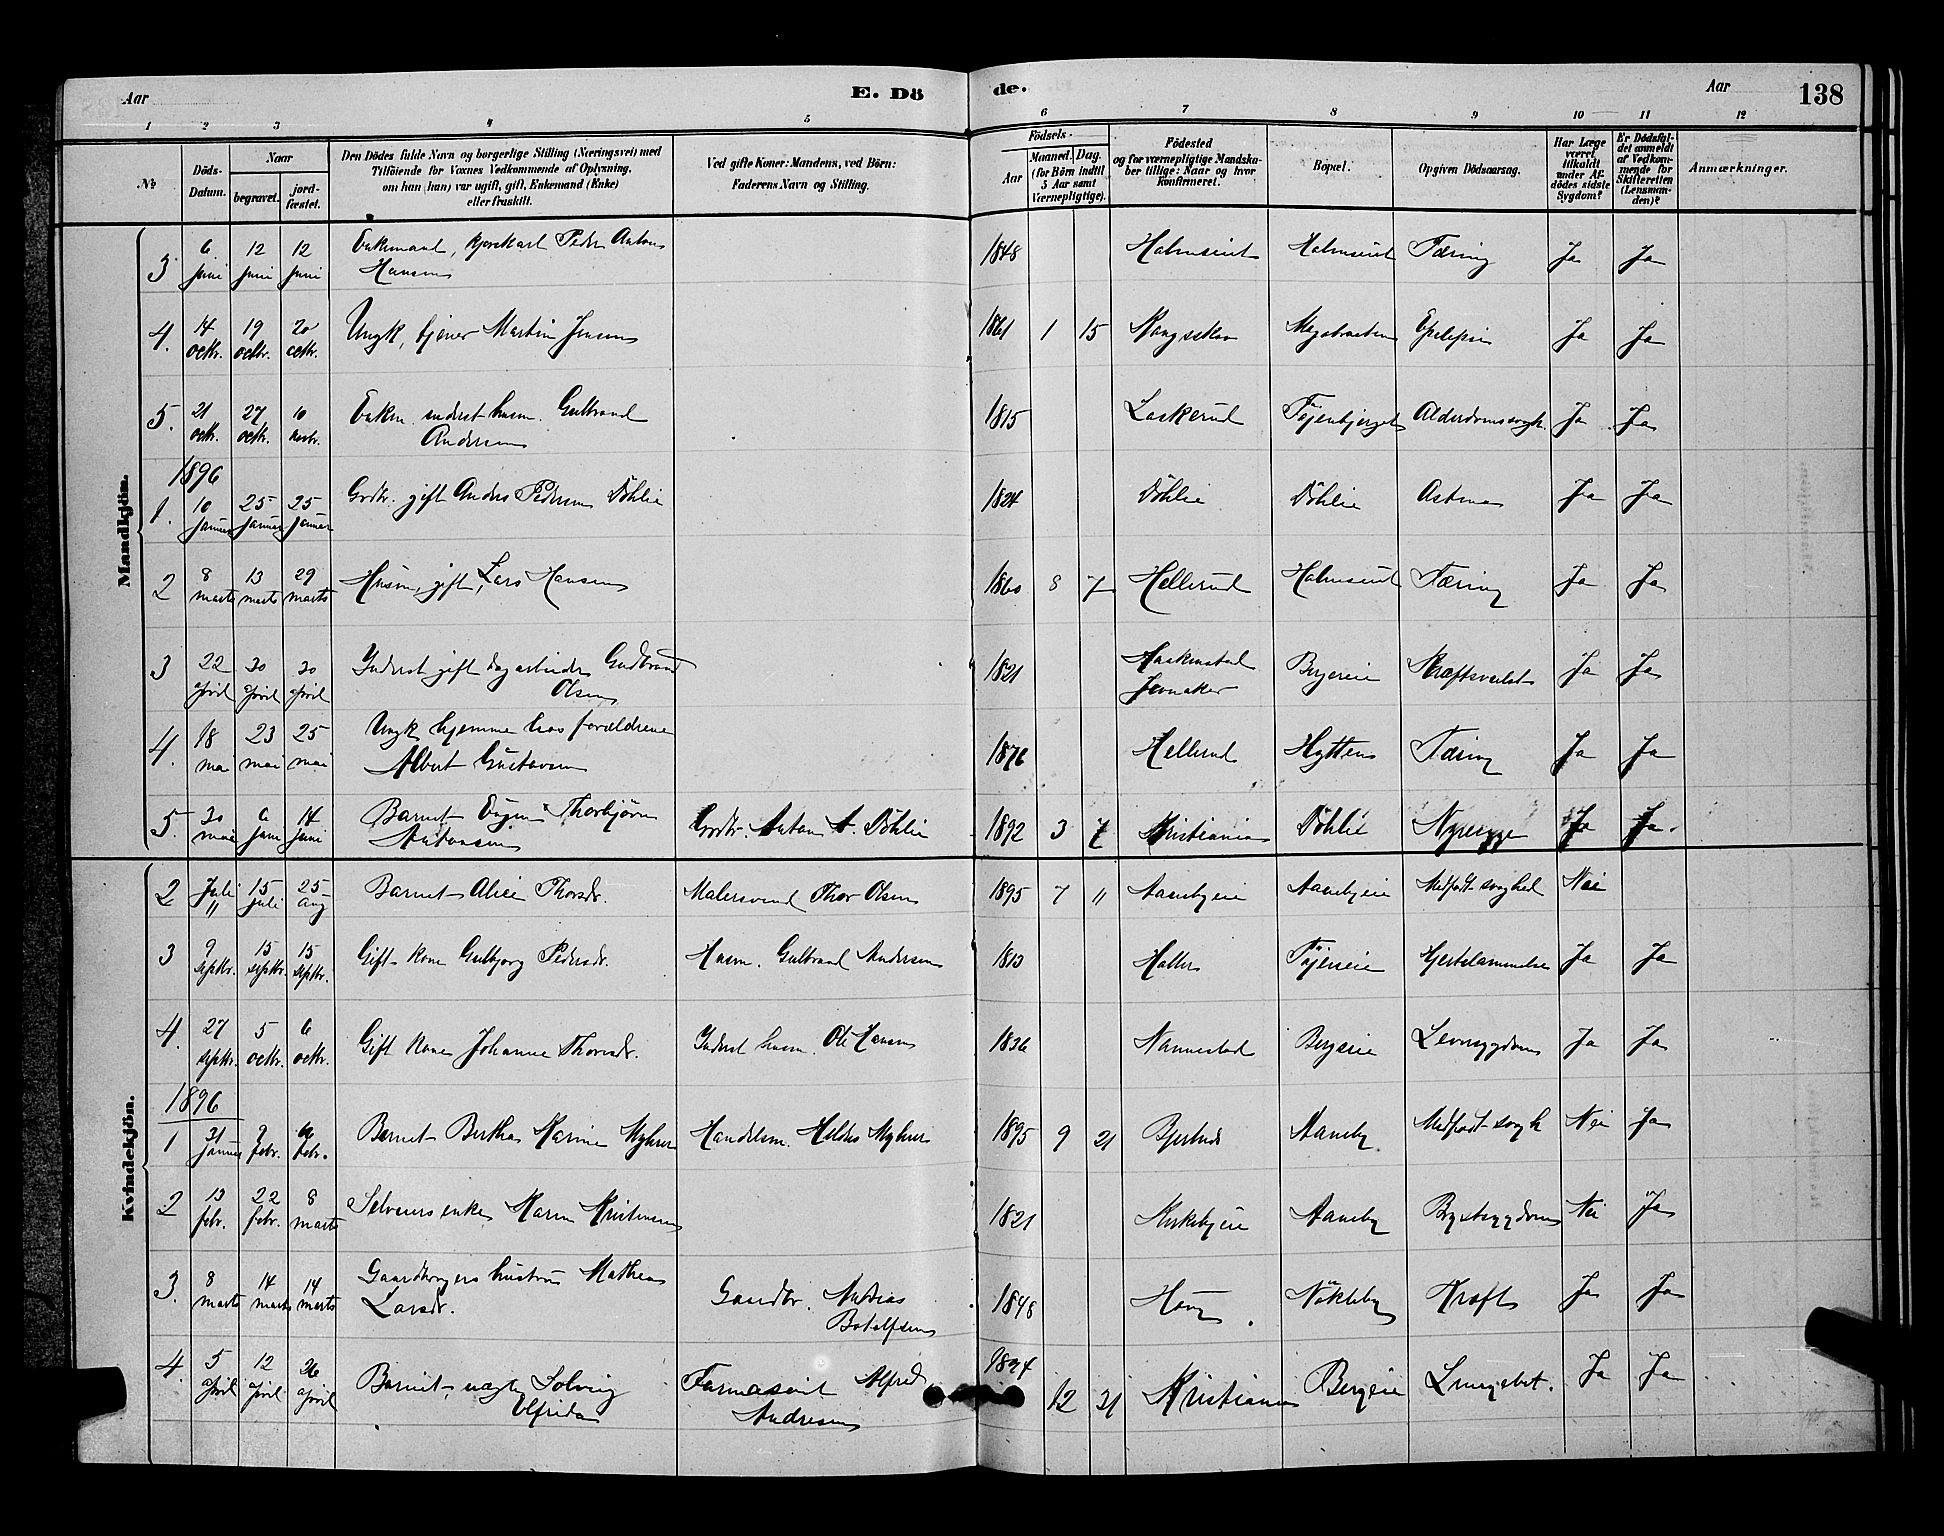 Aar
E. Dö
de.
Aar
138
1 2 3 4 5 6 7 8 9 10 11 12
No
Döds-Datum.
Naar
begravet.
jord-fæstet.
Den Dödes fulde Navn og borgerlige Stilling (Næringsvei) med
Tilföiende for Voxnes Vedkommende af Oplysning,
om han (hun) var ugift, gift, Enkemand (Enke)
eller fraskilt.
Ved gifte Koner: Mandens, ved Börn:
Faderens Navn og Stilling.
Födsels-
Aar
Maaned.
Dag.
(for Börn indtil
5 Aar samt
Værnepligtige).
Födested
og for værnepligtige Mandska-
ber tillige: Naar og hvor
Konfirmeret.
Bopæl.
Opgiven Dödsaarsag.
Har Læge
været
tilkaldt
under Af-
dödes sidste
Sygdom?
Er Dödsfal-
det anmeldt
af Vedkom-
mende for
Skifteretten
(Lensman-
den)?
Anmærkninger.
Mandkjön.
3 6 juni 12 juni 12 juni Enkemand, Peder Anton Hansen 1848 Holmseiet Holmseiet Tæring Ja Ja
4. 14 octbr. 19 octbr. 20 octbr. Ungk, tjener Martin Jensen 1861 1 15 Epilepsi Ja Ja
5. 21 octbr. 27 octbr. 10 novbr. Enkem. inderst husm. Gulbrand Andersen 1815 Laskerud Töjenbjerget Alderdomssvagh. Ja Ja
1896
1. 10 januar 25 januar 25 januar Grdbr. gift Anders Pedersen Döhlie 1824 Döhlie Döhlie Astma Ja Ja
2 8 marts 13 marts 29 marts Husm, gift, Lars Hansen 1860 8 7 Hellerud Holmseiet Tæring Ja Ja
3 22 april 30 april 30 april Inderst gift dagarbeider Gudbrand Olsen 1821 Jevnaker Bergereie Kræftsvulst Ja Ja
4. 18 mai 23 mai 25 mai Ungk hjemme hos forældrene Albert Gustavsen 1876 Hellerud Hytten Tæring Ja Ja
5. 30 mai 6 juni 14 juni Barnet Eugen Thorbjörn Antonsen Grdbr. Anton A. Döhlie 1892 3 7 Kristiania Döhlie Nyresyge Ja Ja.
Kvindekjön.
2 Juli 11 15 juli 25 aug Barnet Alice Thorsdr. Malersvend Thor Olsen 1895 7 11 Aanebyeie Aanebyeie Medfödt svaghed Nei
3 9 septbr. 15 septbr. 15 septbr. Gift kone Gulbjørg Pedersdr. Husm. Gulbrand Andersen 1813 Töjeneie Hjertelammelse Ja Ja
4. 27 septbr. 5 octbr. 6 octbr. Gift kone Johanne Thorsdr. Inderst husm. Ole Hansen 1836 Nannestad Bergereie Leversygdom Ja Ja
1896
1 31 januar 9 febr. 9 febr. Barnet Bertha Karine Myhrer Handelsm. Myhrer 1895 9 21 Aaneby Medfödt svagh Nei Ja
2 13 febr. 22 febr. 8 marts Selveiers enke, Karen Kristiansen 1821 Kirkebyeie Aaneby Brystsygdom Nei Ja
3. 8 marts 14 marts 14 marts Gaardbrugers hustru Mathea Larsdr. Gaardbr. Andreas Botolfsen 1848 Haug Nökleby Kræft Ja Ja
4. 5 april 12 april 26 april Barnet uægte Solveig Alfrida Farmaseut Alfred Andresen 1894 12 31 Kristiania Bergereie Lungebet. Ja Ja